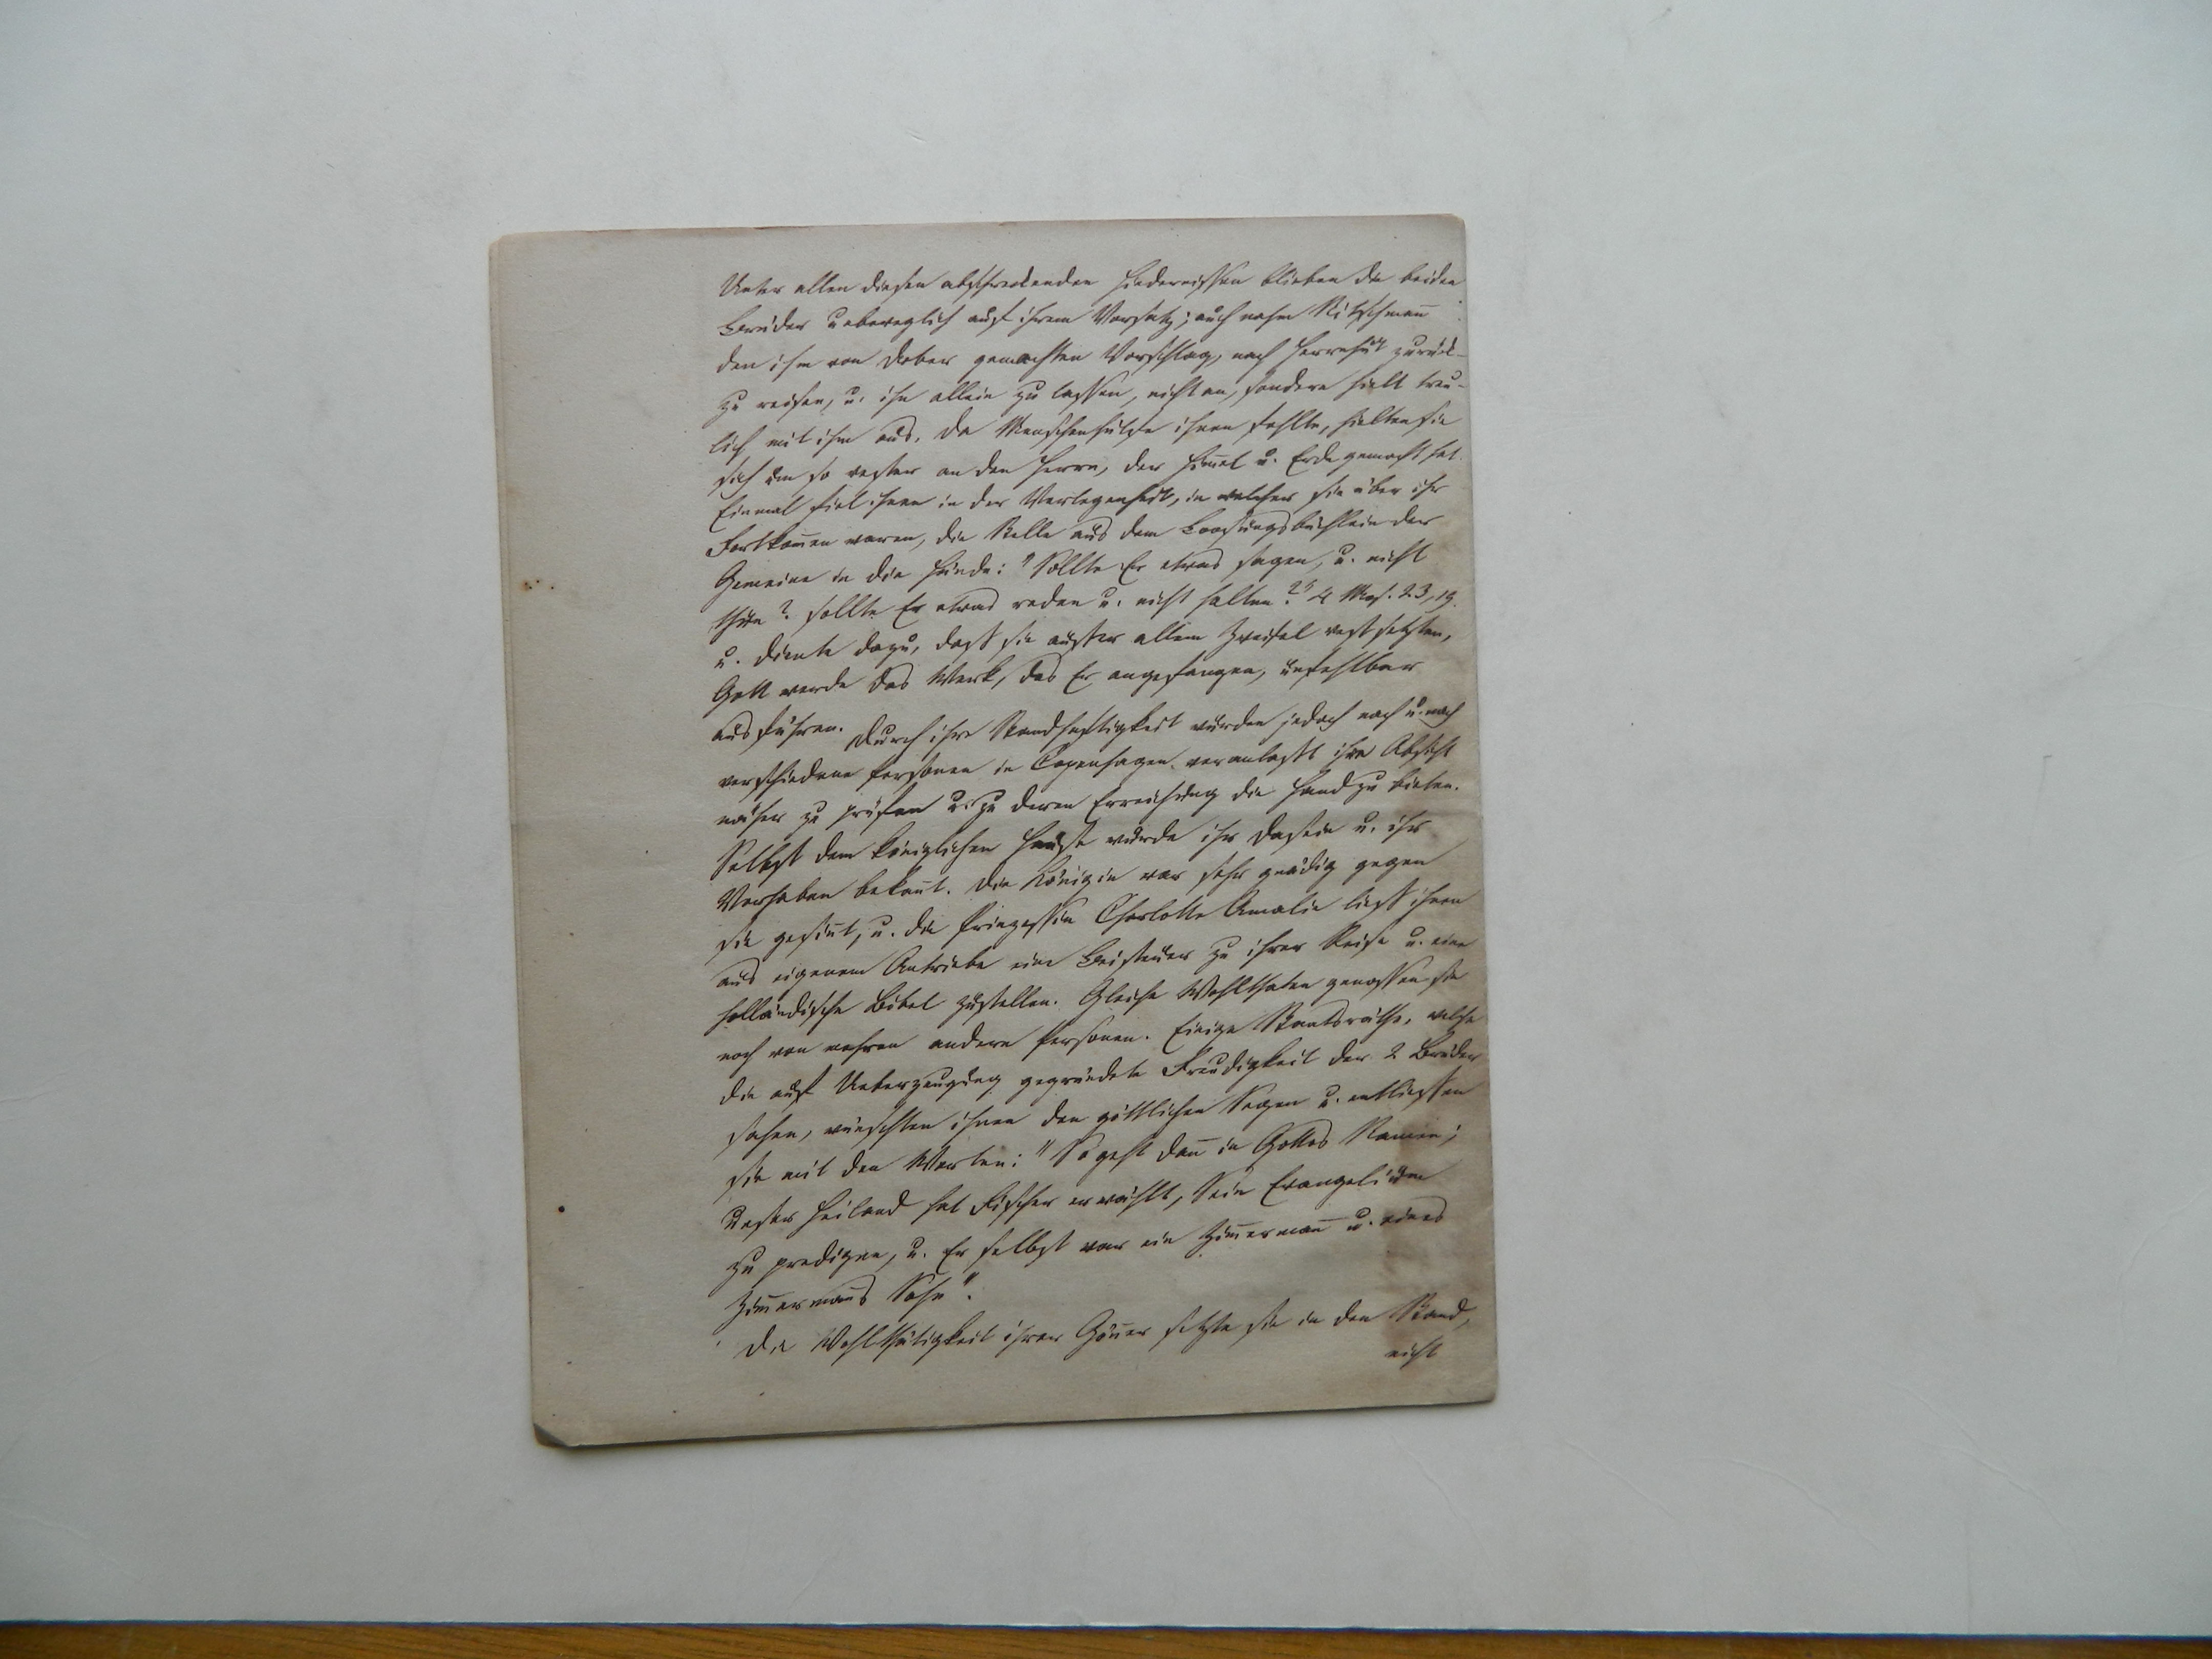 Unter allen diesen abschreckenden Hindernissen blieben die beiden
Brüder unbeweglich auf ihrem Vorsatz; auch nahm Nitschmañ
den ihm von Dober gemachten Vorschlag, nach Herrnhut zurück-
zu reisen, u. ihn allein zu lassen, nicht an, sondern hielt treu-
lich mit ihm aus. Da Menschenhülfe ihnen fehlte, hielten sie
sich um so vester an den Herrn, der Him̄el u. Erde gemacht hat.
Einmal fiel ihnen in der Verlegenheit, in welcher sie über ihr
Fortkom̄en waren, die Stelle aus dem Loosungsbüchlein der
Gemeine in die Hände: "Sollte Er etwas sagen, u. nicht
thun? sollte Er etwas reden u. nicht halten?" 4 Mos. 23, 19.
u. diente dazu, dass sie ausser allem Zweifel vest setzten,
Gott werde das Werk, das Er angefangen, unfehlbar
ausführen. Durch ihre Standhaftigkeit wurden jedoch nach u. nach
verschiedene Personen in Copenhagen veranlasst ihre Absicht
näher zu prüfen u. zu deren Erreichung die Hand zu bieten.
Selbst dem königlichen Hause wurde ihr Dasein u. ihr
Vorhaben bekañt. Die Königin war sehr gnädig gegen
sie gesiñt, u. die Prinzessin Charlotte Amalie liess ihnen
aus eigenem Antriebe eine Beisteuer zu ihrer Reise u. eine
holländische Bibel zustellen. Gleiche Wohlthaten genossen sie
noch von mehren andern Personen. Einige Staatsräthe, welche
die auf Ueberzeugung gegründete Freudigkeit der 2 Brüder
sahen, wünschten ihnen den göttlichen Segen u. entliessen
sie mit den Worten: "So geht dañ in Gottes Namen;
unser Heiland hat Fischer erwählt, Sein Evangelium
zu predigen, u. Er selbst war ein Zim̄ermañ u. eines
Zim̄ermañs Sohn".
Die Wohlthätigkeit ihrer Göñer setzte sie in den Stand,
nicht